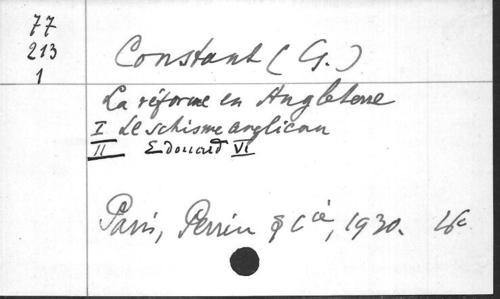 77
213
1
Constant (G.)
La réforme en Angleterre
I Le schisme anglican
II Edouard VI
Paris, Perrin & Cie, 1930.